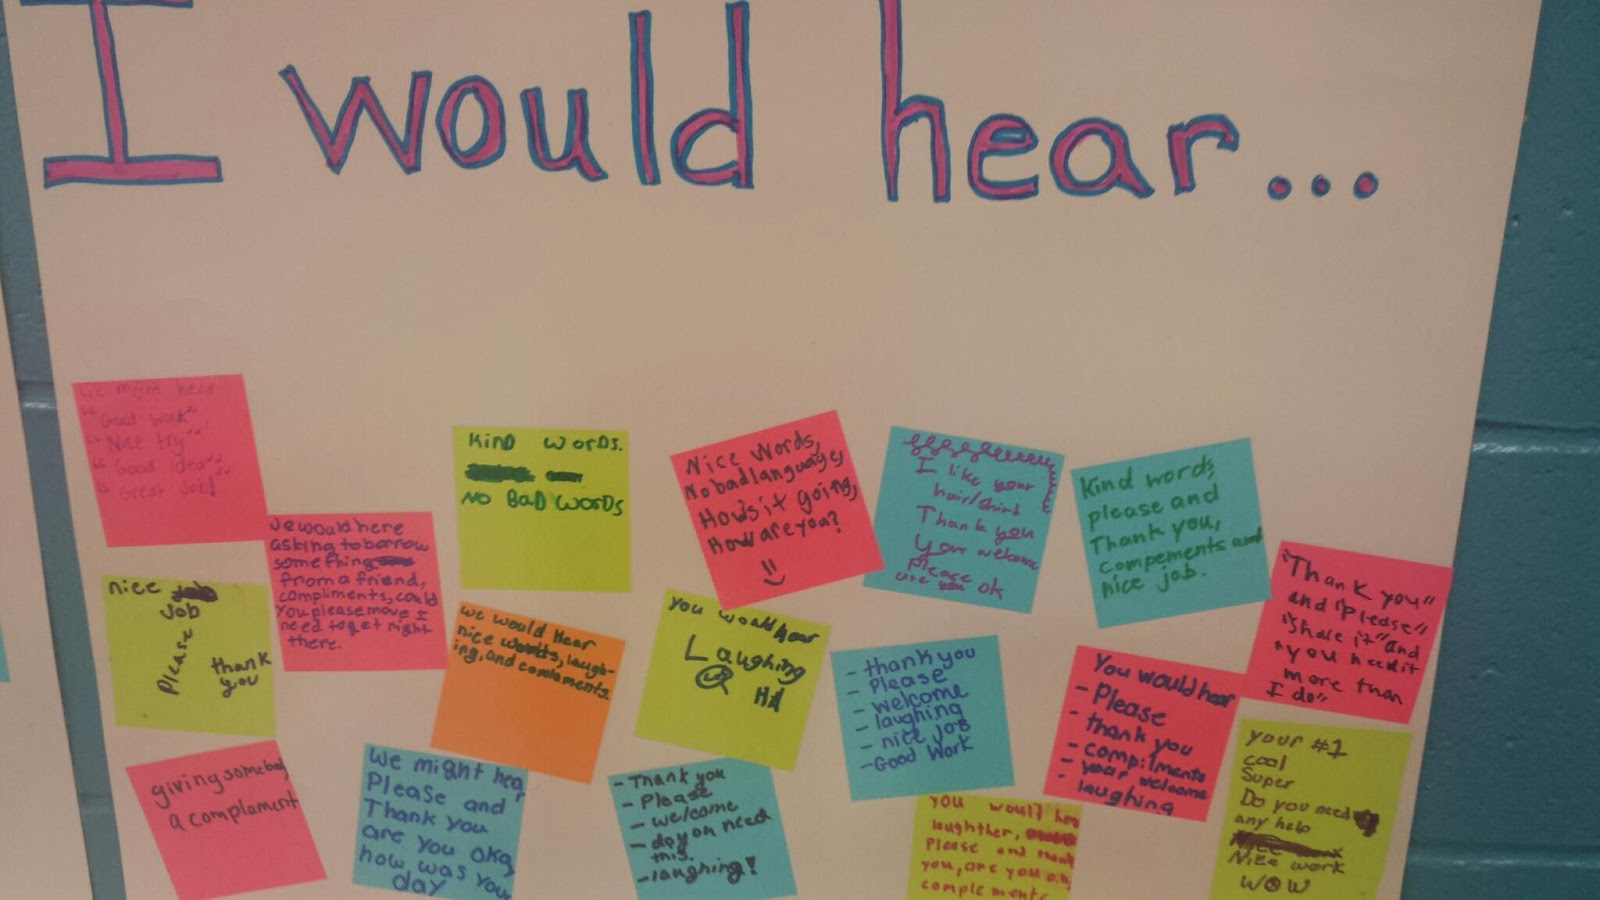 I would hear...
We might hear
"Good work"
"Nice try"
"Good idea"
"Great Job!
we would here
asking to borrow
something
from a friend,
compliments, could
you please move I
need to get right
there.
Kind words.
NO BAD WORDS
Nice Words,
No bad language,
How's it going,
How are you?
I like your
hair/shirt
Thank you
your welcome
please ok
Kind words,
please and
Thank you,
compements and
nice job.
"Thank you"
and "please"
"Share it" and
"you need it
more than
I do"
nice
Job
Please
thank
you
we would Hear
nice words, laugh-
ing, and comloments.
you would hear
Laughing
HA
- thank you
- Please
- welcome
- laughing
- nice job
- Good Work
You would hear
- Please
- thank you
- compilments
- your welcome
- laughing
your #1
cool
Super
Do you need
any help
Nice work
WOW
giving somebody
a complament
We might hear
Please and
Thank you
are you okay
how was your
day
- Thank you
- Please
- welcome
- do you need
this.
- laughing!
you would hear
laughther,
please and thank
you, are you o.k,
complements